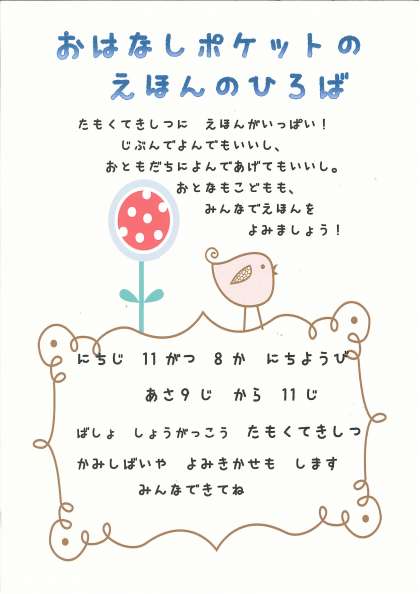 おはなしポケットの
えほんのひろば
たもくてきしつに　えほんがいっぱい！
じぶんでよんでもいいし、
おともだちによんであげてもいいし。
おとなもこどもも、
みんなでえほんを
よみましょう！
にちじ　11がつ　8か　にちようび
あさ9じ　から　11じ
ばしょ　しょうがっこう　たもくてきしつ
かみしばいや　よみきかせも　します
みんなできてね